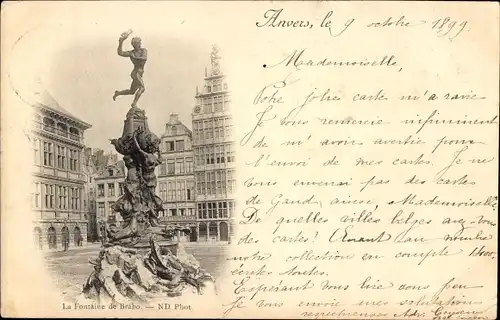 Anvers, le 9 octobre 1899
Mademoiselle,
Votre jolie carte m'a ravie
Je vous remercie infiniment
de m'avoir avertie pour
l'envoi de mes cartes. Je ne
vous enverrai pas des cartes
de Gand, ainsi, Mademoiselle
De quelles villes belges avez-vous
des cartes? Avant au nombre
notre collection en compte 1400
cartes toutes.
Espérant vous lire dans peu
Je vous envoie mes salutations
La Fontaine de Brabo. — ND Phot